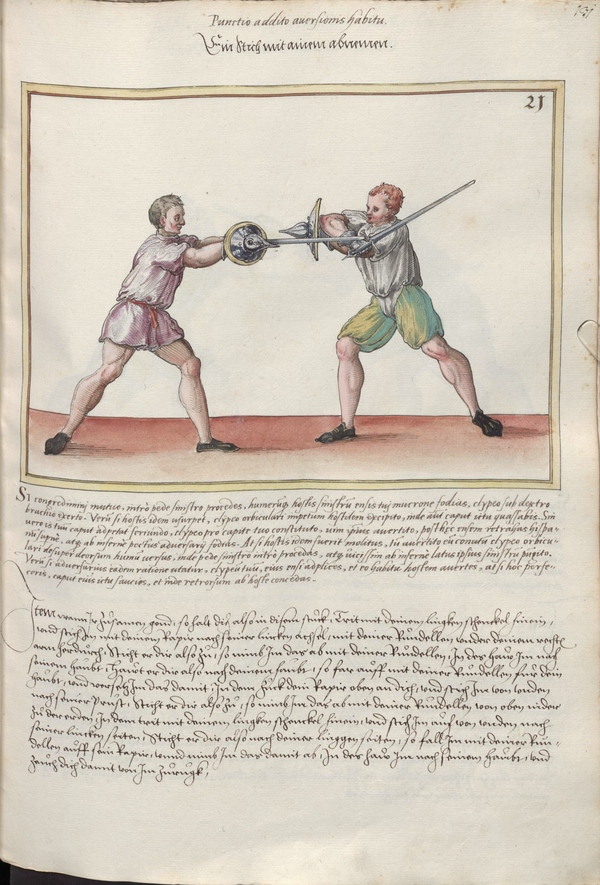 Punctio addito auersionis habitu.
Ein Stich mit ainem abnemen.
131
21
Si congredimini mutuo, intrò pede sinistro procedes, humerumq̃ hostis sinistrũ ensis tui mucrone fodias, clypeo sub dextro
brachio exerto. Verũ si hostis idem usurpet, clypeo orbiculari impetum hostilem excipito, inde
caput ictu quassabis. Sin
uero is tuũ caput adpetat feriundo, clypeo pro capite tuo constituto, uim ipsius auertito, post hęc ensem retrahas
supernè, atq̃ ab infernè pectus aduersarij fodias. At si hostis idem fuerit molitus, tu auertito eiũ conatũ clypeo orbicu,
lari desuper deorsum humũ uersus, inde pede sinistro intrò procedas, atq̃ uicissim ab infernè latus ipsius sinistrũ pũgito.
Verũ si aduersarius eadem ratione utatur, clypeũ tuũ, eius ensi adplices, et eo habitu hostem auertes, at si hoc perfe,
ceris, caput eius ictu saucies, et inde retrorsum ab hoste concedas.
Item wann Ir zusamen gond, so halt dich also in disem stuck, Trit mit deinem lingken schenckel hinein,
vnd stich Im mit deinem Rapir nach seiner lincken achsel, mit deiner Rundellen vnder deinem rechten
arm herdurch, Sticht er dir also zu, so nimb Im das ab mit deiner Rundellen, In des haw Im nach
seinem haubt, Hawt er dir also nach deinem haubt, so far auff mit deiner Rundellen für dein
haubt, vnd versetz Im das damit, In dem zuck dein Rapir oben an dich, vnd stich Im von vnden
nach seiner Prust, Sticht er dir also zu, so nimb Im das ab mit deiner Rundellen von oben nider
zu der erden, In dem trit mit deinem lingken schenckel hinein, vnd stich Im auch von vnden nach
seiner lincken seiten, Sticht er dir also nach deiner linggen seiten, so fall Im mit deiner Run,
dellen auff sein Rapir, vnnd nimb Im das damit ab, In des haw Im nach seinem haubt, vnd
zeuch dich damit von Im zuruck.